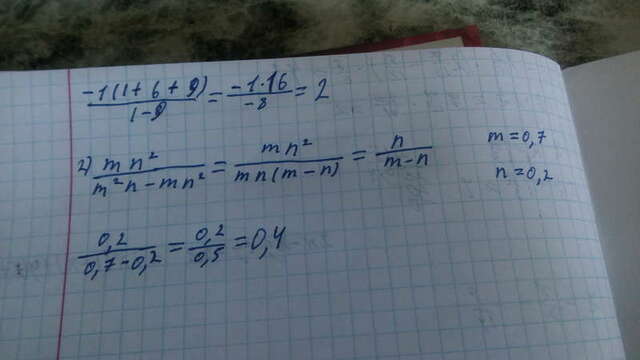 -1(1+6+9)/1-9 = -1·16/-8 = 2
2) mn²/m²n-mn² = mn²/mn(m-n) = n/m-n
m=0,7
n=0,2
0,2/0,7-0,2 = 0,2/0,5 = 0,4